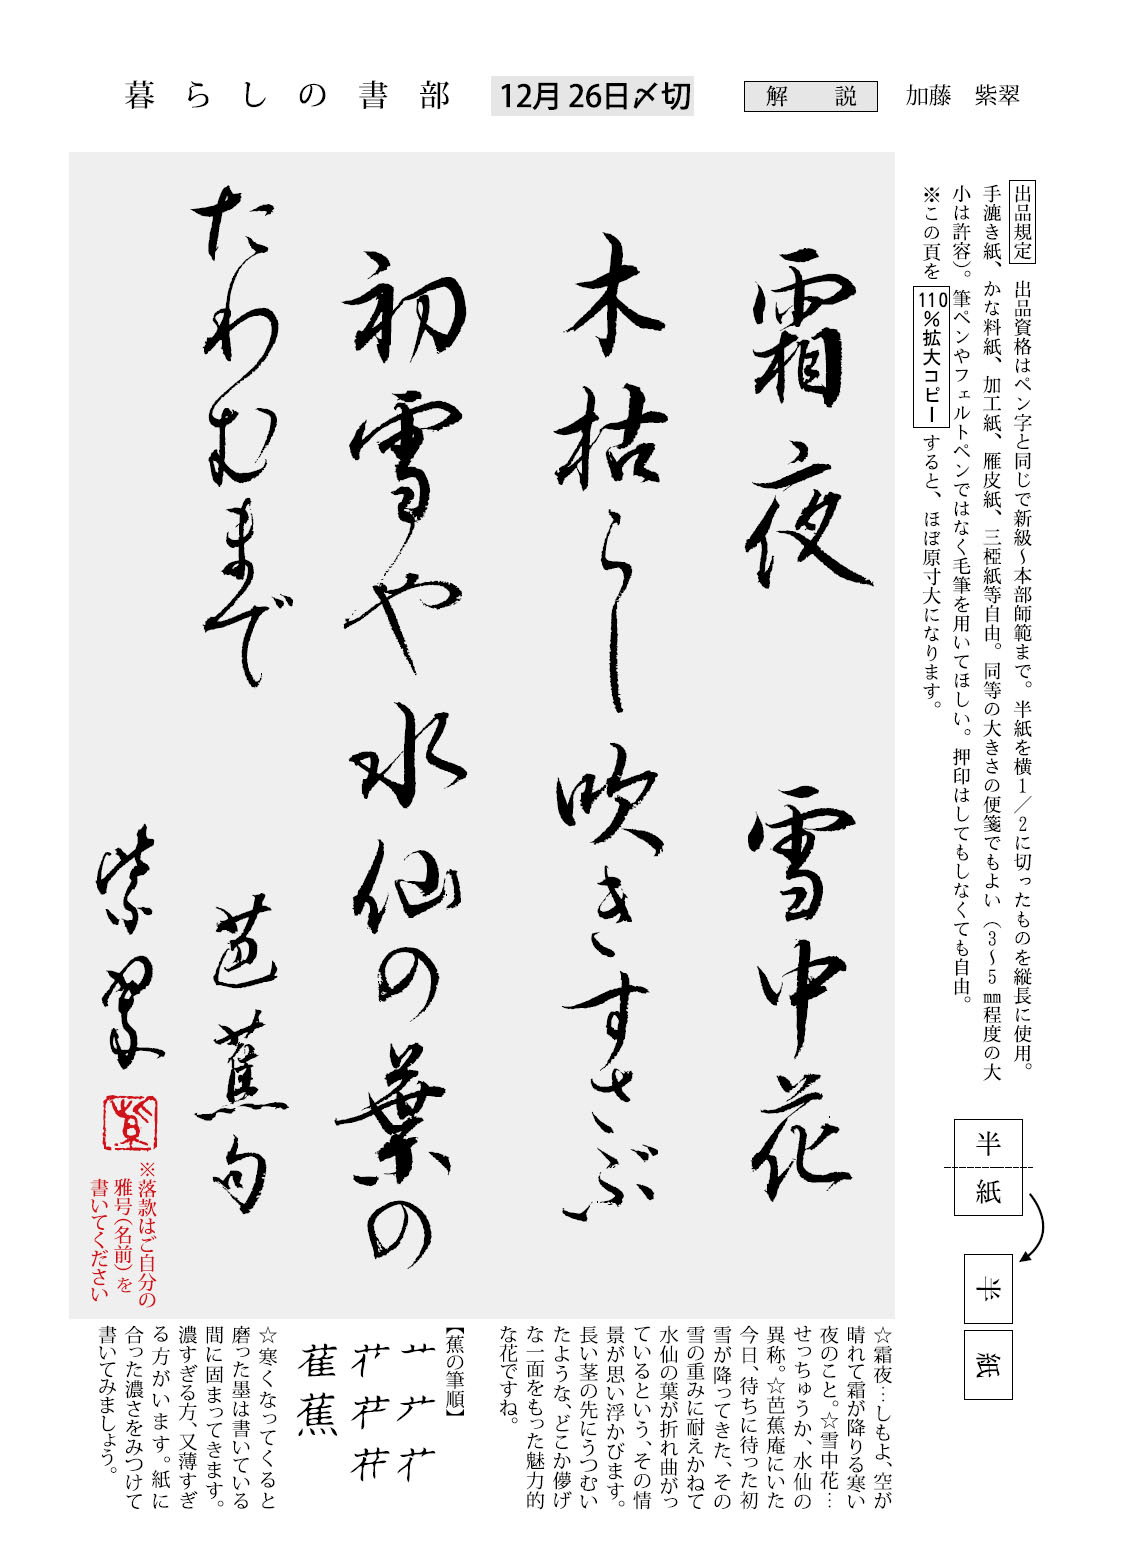 暮らしの書部
12月26日〆切
解説
加藤 紫翠
出品規定 出品資格はペン字と同じで新級～本部師範まで。半紙を横1／2に切ったものを縦長に使用。
手漉き紙、かな料紙、加工紙、雁皮紙、三椏紙等自由。同等の大きさの便箋でもよい（3～5㎜程度の大
小は許容）。筆ペンやフェルトペンではなく毛筆を用いてほしい。押印はしてもしなくても自由。
※この頁を110％拡大コピーすると、ほぼ原寸大になります。
半紙
半
紙
霜夜 雪中花
木枯らし吹きすさぶ
初雪や水仙の葉の
たわむまで
芭蕉句
紫翠
※落款はご自分の
雅号（名前）を
書いてください
☆霜夜…しもよ、空が
晴れて霜が降りる寒い
夜のこと。☆雪中花…
せっちゅうか、水仙の
異称。☆芭蕉庵にいた
今日、待ちに待った初
雪が降ってきた、その
雪の重みに耐えかねて
水仙の葉が折れ曲がっ
ているという、その情
景が思い浮かびます。
長い茎の先にうつむい
たような、どこか儚げ
な一面をもった魅力的
な花ですね。
【蕉の筆順】
☆寒くなってくると
磨った墨は書いている
間に固まってきます。
濃すぎる方、又薄すぎ
る方がいます。紙に
合った濃さをみつけて
書いてみましょう。